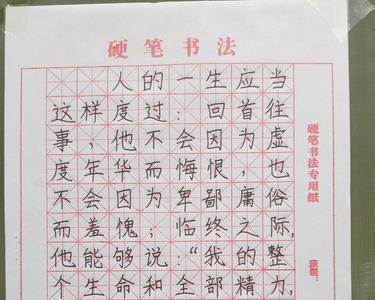 硬笔书法
人的一生应当
这样度过：回首往
事，他不会因为虚
度年华而悔恨，也
不会因为卑鄙庸俗
而羞愧；临终之际，
他能够说：“我的整
个生命和全部精力，
硬笔书法专用纸
班级：